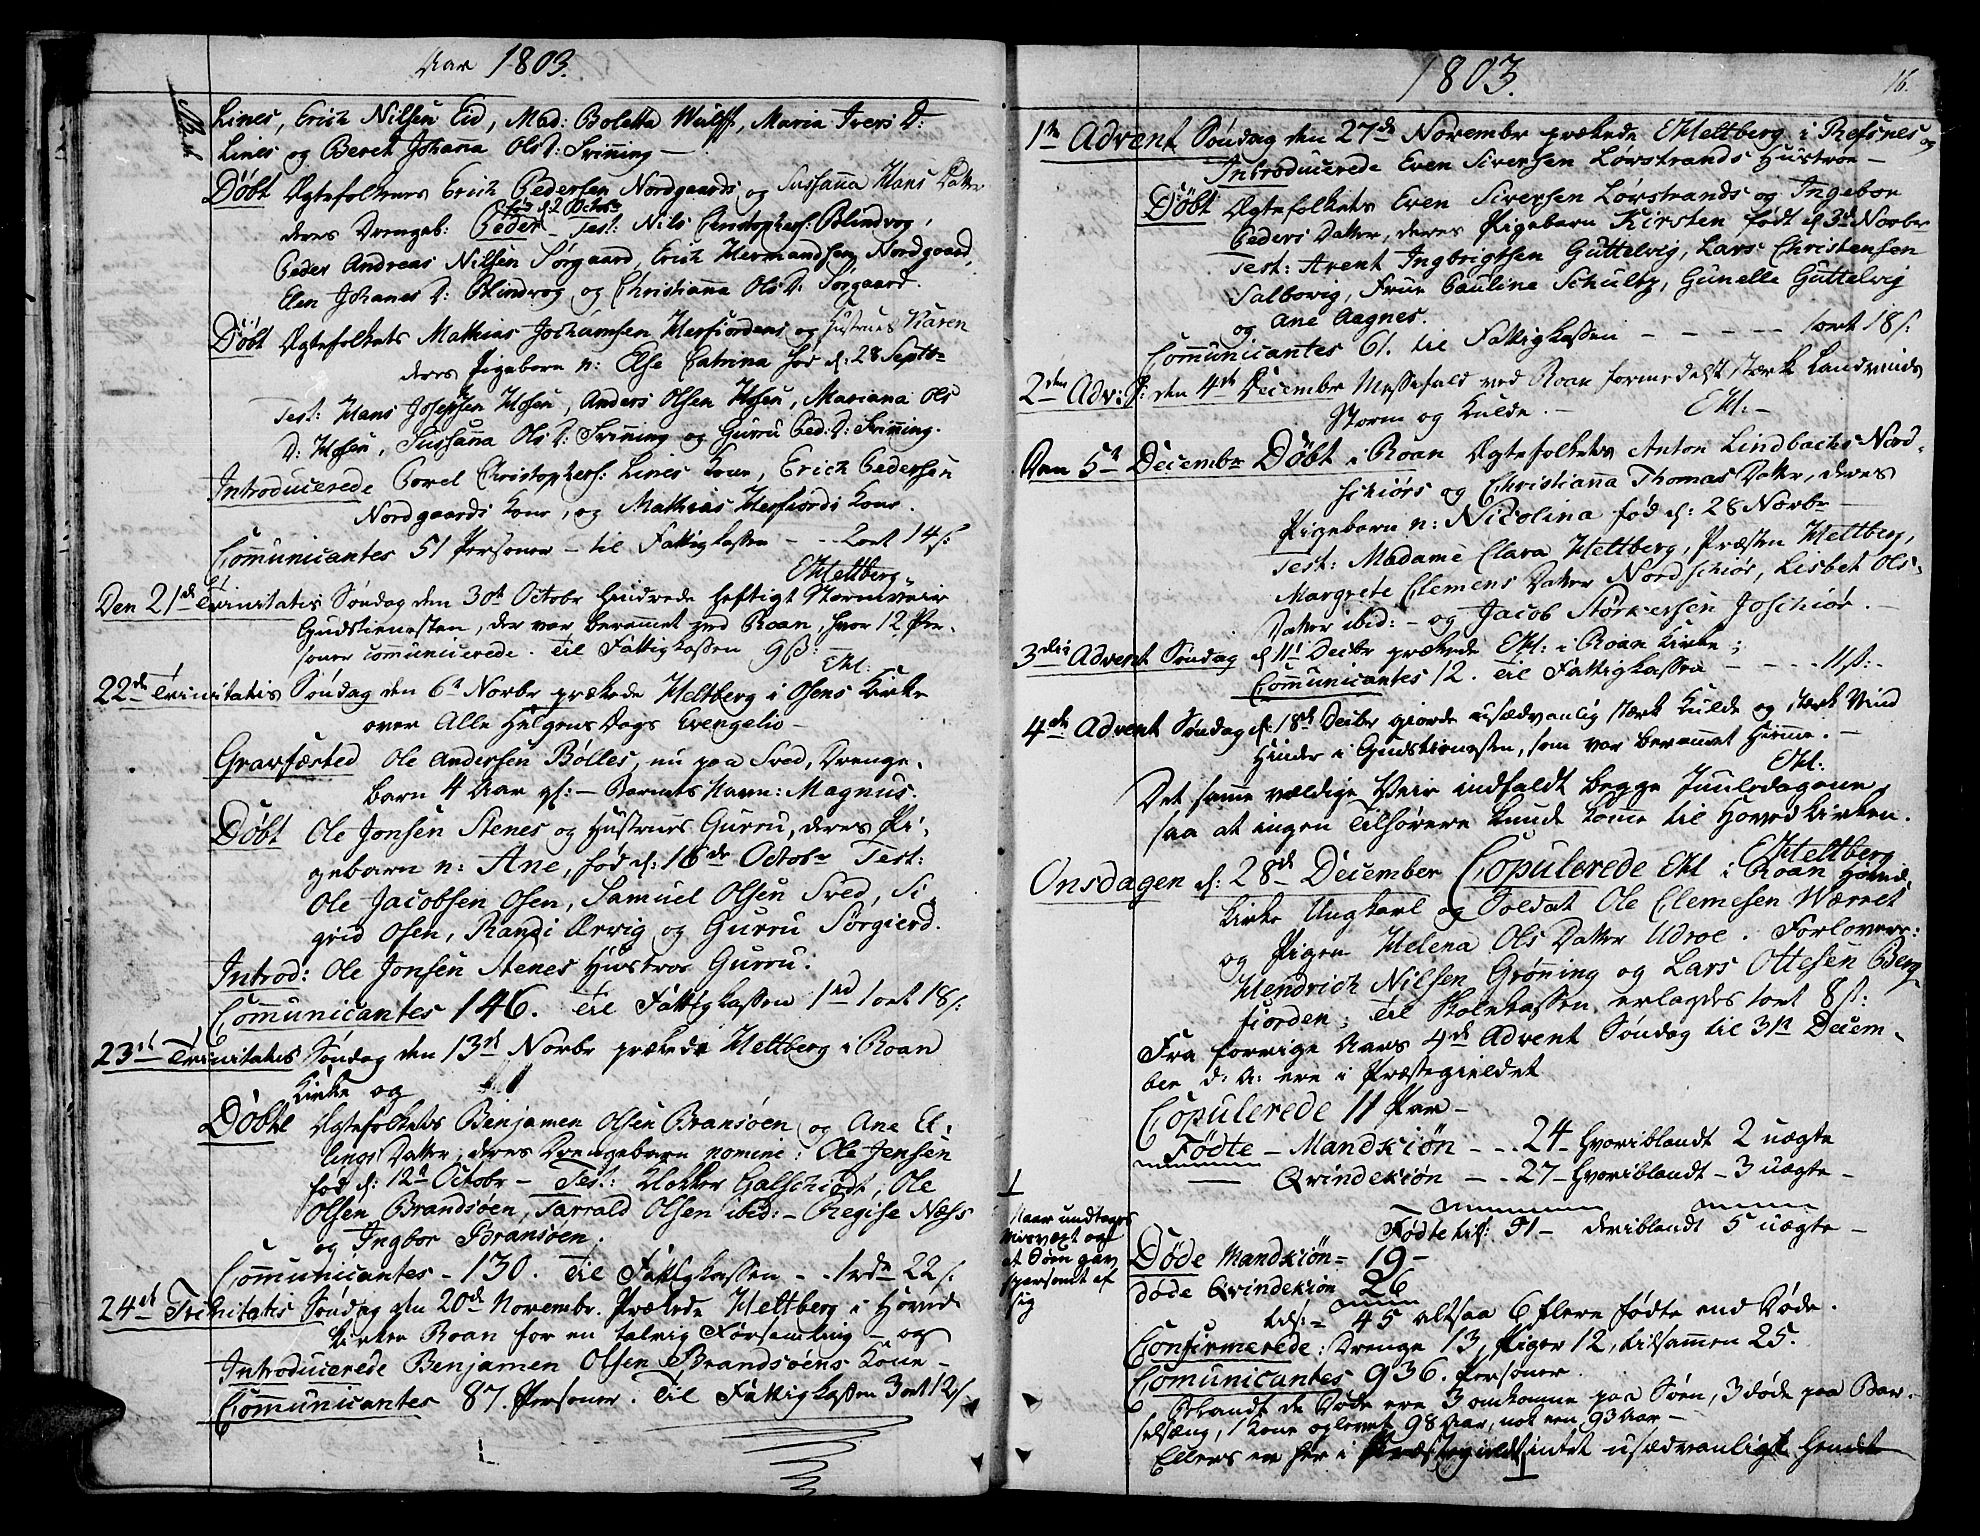 Aar 1803.
Lines, Erich Nilsen Eid, Mad: Boletta Wulff, Maria Ivers D:
Lines og Beret Johanna Ols D: Sviñing —
Døbt Ægtefolkenes Erich Pedersen Nordgaards og Susanna Hans Datter
fød d. 2 Octobr
deres Drengeb: Peder — Test: Nils Christophers: Blindvog,
Peder Andreas Nilsen Sørgaard, Erich Hermandsen Nordgaard,
Elen Johanes D: Blindvog og Christiañа Ols D: Sørgaard.
Døbt Ægtefolkets Mathias Jochumsen Herfiordens og Hustrues Karen
deres Pigebarn n: Else Catrina fød d: 28 Septr
Test: Hans Josephsen Hosen, Anders Olsen Hosen, Mariana Ols
D: Hosen, Sussaña Ols D: Sviñing og Gurru Ped: D: Sviñing.
Introducerede Povel Christophers: Lines Kone, Erich Pedersen
Nordgaards Kone, og Mathias Herfiords Kone.
Com̃unicantes 51 Personer — til Fattigkassen - - 2 ort 14 s:
EHeltberg
Den 21de Trinitatis Søndag den 30t Octobr hindrede heftigt Stormveir
Gudstienesten, der var berammet ved Roan, hvor 12 Per-
soner communicerede. Til Fattigkassen 9 ß:
EH:
22de Trinitatis Søndag den 6t Novbr prækede Heltberg i Osens Kirke
over Alle Helgens Dags Evengelio —
Gravfæsted Ole Andersen Bølles, nu paa Sved, Drenge-
barn 4 Aar gl: — Barnets Navn: Magnus.
Døbt Ole Jonsen Stenes og Hustrues Gurru, deres Pi-
gebarn n: Ane, fød d: 16de Octobr Test:
Ole Jacobsen Osen, Samuel Olsen Sved, Si-
grid Osen, Randi Ervig og Gurru Sørgierd.
Introd: Ole Jonsen Stenes Hustroe Gurru.
Com̃unicantes 146. Til Fattigkassen 1rd 1 ort 18 s:
23de Trinitatis Søndag den 13de Novbr prækede Heltberg i Roan
Kirke og
Døbte Ægtefolkets Benjamen Olsen Bransøen og Ane El-
lings Datter, deres Drengebarn nomine: Ole Jensen
fød d: 12t Octobr — Test: Klokker Galschiødt, Ole
Olsen Brandsøen, Tarrald Olsen ibid: — Regise Næss
og Ingbor Bransøen.
Com̃unicantes - 130. Til Fattigkassen - - 1rdr 22 s:
24de Trinitatis Søndag den 20de Novembr. Prækede Heltberg i Hoved
Kirken Roan for en talrig Forsamling — og
Introducerede Benjamen Olsen Brandsøens Kone —
Com̃unicantes 87. Personer. Til Fattigkassen 3 ort 12 s.
1803.
16.
1te Advent Søndag den 27de Novembr prækede EHeltberg i Refsnes og
Introducerede Even Siversen Lørstrands Hustroe —
Døbt Ægtefolkets Even Siversen Lørstrands og Ingebor
Peders Datter, deres Pigebarn Kirsten født d 3de Novbr
Test: Arent Ingbrigtsen Guttelvig, Lars Christensen
Salbovig, Frue Pauline Schultz, Gunelle Guttelvig
og Ane Aagnes.
Com̃unicantes 61. til Fattigkassen - - - - - 1 ort 18 s:
2den Adv: S: den 4de Decembr Messefald ved Roan formedelst stærk Landvinds
Storm og Kulde. — EH: —
Den 5te Decembr Døbt i Roan Ægtefolkets Anton Lindbachs Nord-
schiørs og Christiaña Thomas Datter, deres
Pigebarn n: Nicolina fød d: 28 Novbr —
Test: Madame Clara Heltberg, Præsten Heltberg,
Margrete Clemens Datter Nordschiør, Lisbet Ols-
Datter ibid: — og Jacob Størkersen Joschiør. —
3die Advent Søndag d 11t Decbr prækede EH: i Roan Kirke;
Com̃unicantes 12. Til Fattigkassen - - - - 11 s: -
4de Advent Søndag d: 18de Decbr giorde usædvanlig stærk Kulde og stærk Vind
Hinder i Gudstienesten, som var berammet Hieme. —
EH:
Det samme vældige Veir indfaldt begge Juuledagene,
saa at ingen Tilhørere kunde komme til Hovedkirken.
EHeltberg
Onsdagen d: 28de December Copulerede EH i Roan Hoved-
kirke Ungkarl og Soldat Ole Clemesen Værret
og Pigen Helena Ols Datter Udroe. Forlovere:
Hendrich Nilsen Grøning og Lars Ottesen Berg-
fiorden; Til Skolekassen erlagdes 1 ort 8 s:
Fra forrige Aars 4de Advent Søndag til 31te Decem-
ber d: A: ere i Præstegieldet
Copulerede 11 Par —
Fødte — Mandkiøn - - 24 - hvoriblandt 2 uægte
Qvindekiøn - - 27 - hvoriblandt - 3 uægte -
Fødte tils: 51 — deriblandt 5 uægte —
Døde Mandkiøn = 19 -
døde Qvindekiøn 26
tils: = 45 altsaa 6 flere fødte end Døde.
Confirmerede: Drenge 13, Piger 12, tilsammen 25.
Com̃unicantes 936. Personer.
Iblandt de Døde ere 3 omkomne paa Søen, 3 døde paa Bar-
selsæng, 1 Kone oplevet 98 Aar, not een 93 Aar —
Ellers er her i Præstegieldet intet usædvanligt hendt
Naar undtages
misvæxt og
at Søen gav
sparsomt af
sig